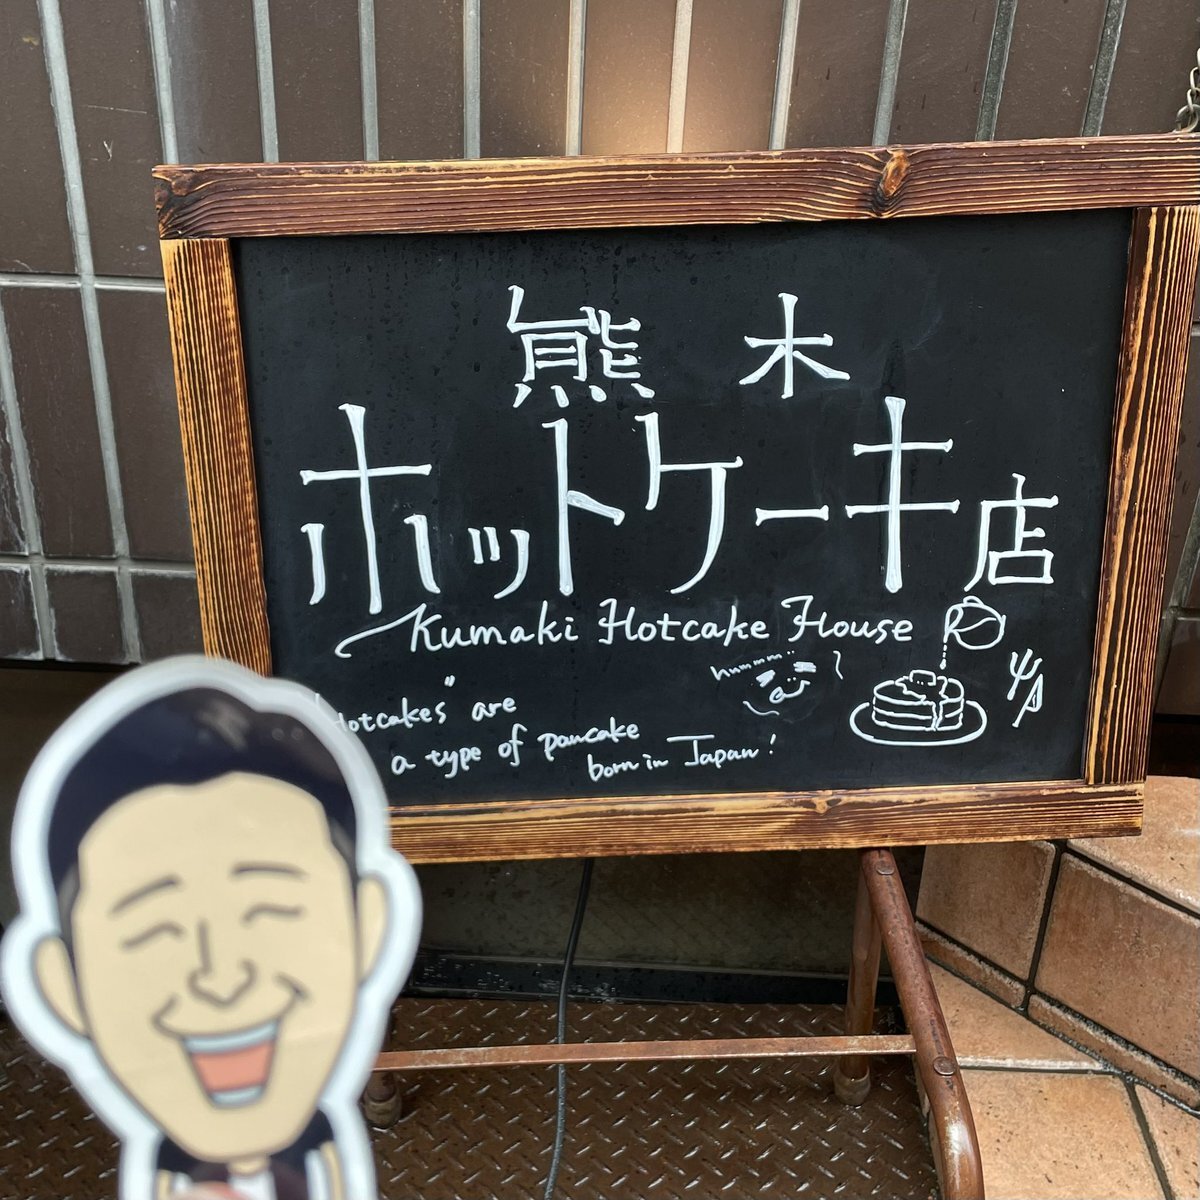 熊木
ホットケーキ店
Kumaki Hotcake House
hummm..
"Hotcakes" are
a type of pancake
born in Japan!